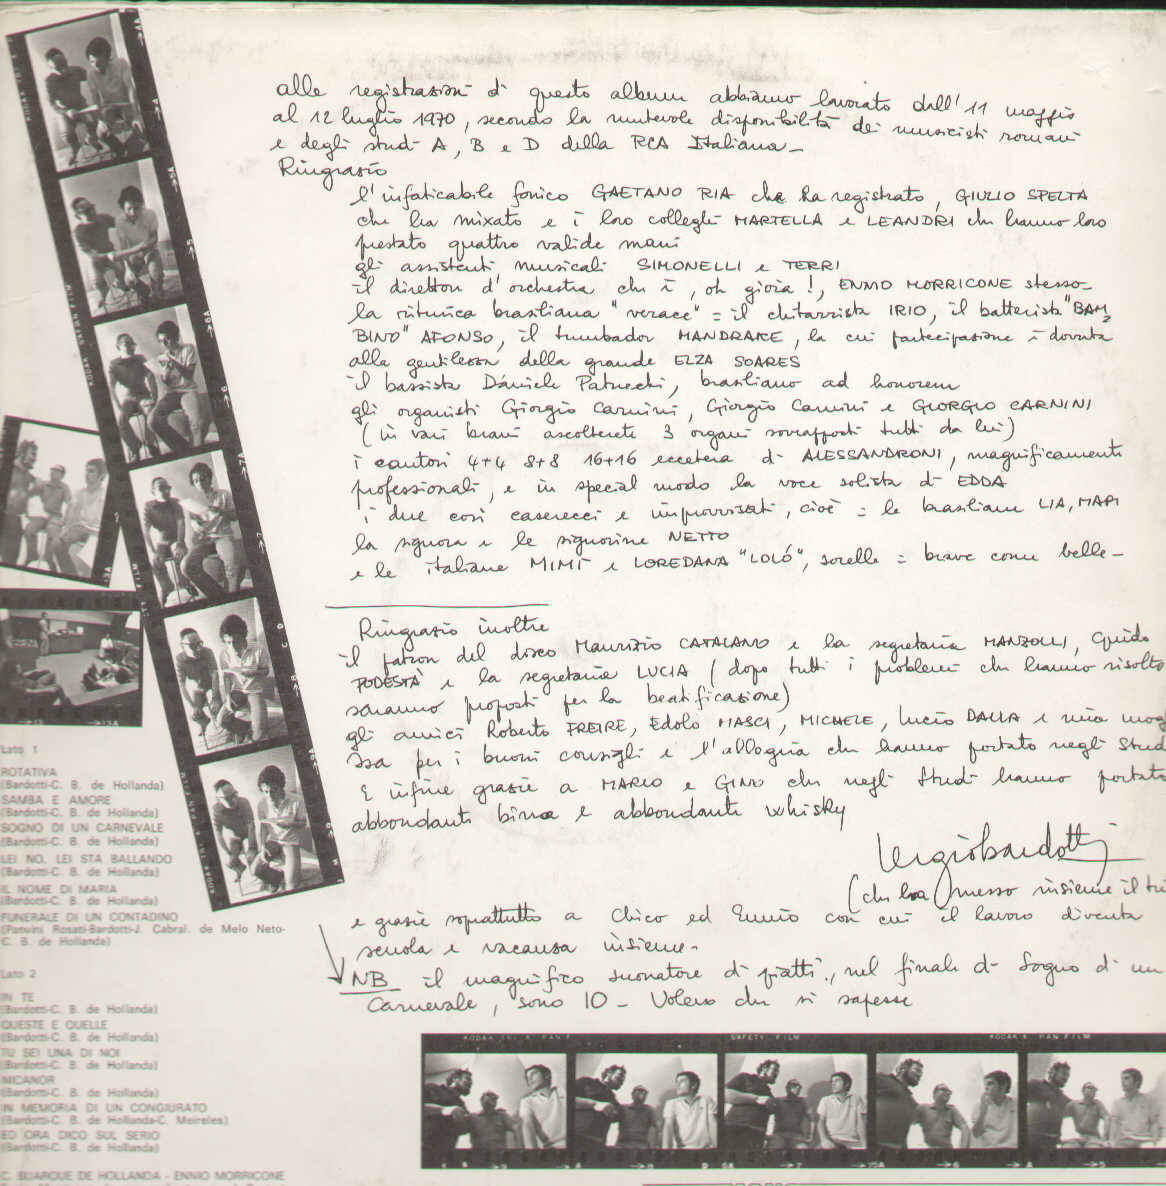 alle registrazioni di questo album abbiamo lavorato dall' 11 maggio
al 12 luglio 1970, secondo la mutevole disponibilità dei musicisti romani
e degli studi A, B e D della RCA Italiana_
Ringrazio
l'infaticabile fonico GAETANO RIA che ha registrato, GIULIO SPELTA
che ha mixato e i loro colleghi MARTELLA e LEANDRI che hanno loro
prestato quattro valide mani
gli assistenti musicali SIMONELLI e TERRI
il direttore d'orchestra che è, oh gioia!, ENNIO MORRICONE stesso_
la ritmica brasiliana "verace" = il chitarrista IRIO, il batterista "BAM
BINO" AFONSO, il tumbador MANDRAKE, la cui partecipazione è dovuta
alla gentilezza della grande ELZA SOARES
il bassista Daniele Patucchi, brasiliano ad honorem
gli organisti Giorgio Carnini, Giorgio Carnini e GIORGIO CARNINI
(in vari brani ascolterete 3 organi sovrapposti tutti da lui)
i cantori 4+4 8+8 16+16 eccetera di ALESSANDRONI, magnificamente
professionali, e in special modo la voce solista di EDDA
i due cori caserecci e improvvisati, cioè = le brasiliane LIA, MARI
la signora e le signorine NETTO
e le italiane MIMÌ e LOREDANA "LOLÓ", sorelle = brave come belle_
Ringrazio inoltre
il patron del disco Maurizio CATALANO e la segretaria MANZOLLI, Guido
PODESTÀ e la segretaria LUCIA (dopo tutti i problemi che hanno risolto
saranno proposti per la beatificazione)
gli amici Roberto FREIRE, Edolo MASCI, MICHELE, Lucio DALLA e mia mog
Isa per i buoni consigli e l'allegria che hanno portato negli Stud
E infine grazie a MARIO e GINO che negli Studi hanno portato
abbondante birra e abbondante whisky
Sergiobardotti
(che ha messo insieme il tu
e grazie soprattutto a Chico ed Ennio con cui il lavoro diventa
scuola e vacanza insieme.
NB il magnifico suonatore di piatti, nel finale di Sogno di un
Carnevale, sono IO_ Volevo che si sapesse
Lato 1
ROTATIVA
(Bardotti-C. B. de Hollanda)
SAMBA E AMORE
(Bardotti-C. B. de Hollanda)
SOGNO DI UN CARNEVALE
(Bardotti-C. B. de Hollanda)
LEI NO, LEI STA BALLANDO
(Bardotti-C. B. de Hollanda)
IL NOME DI MARIA
(Bardotti-C. B. de Hollanda)
FUNERALE DI UN CONTADINO
(Panvini Rosati-Bardotti-J. Cabral. de Melo Neto-
C. B. de Hollanda)
Lato 2
IN TE
(Bardotti-C. B. de Hollanda)
QUESTE E QUELLE
(Bardotti-C. B. de Hollanda)
TU SEI UNA DI NOI
(Bardotti-C. B. de Hollanda)
NICANOR
(Bardotti-C. B. de Hollanda)
IN MEMORIA DI UN CONGIURATO
(Bardotti-C. B. de Hollanda-C. Meireles)
ED ORA DICO SUL SERIO
(Bardotti-C. B. de Hollanda)
C. BUARQUE DE HOLLANDA - ENNIO MORRICONE
SAFETY FILM